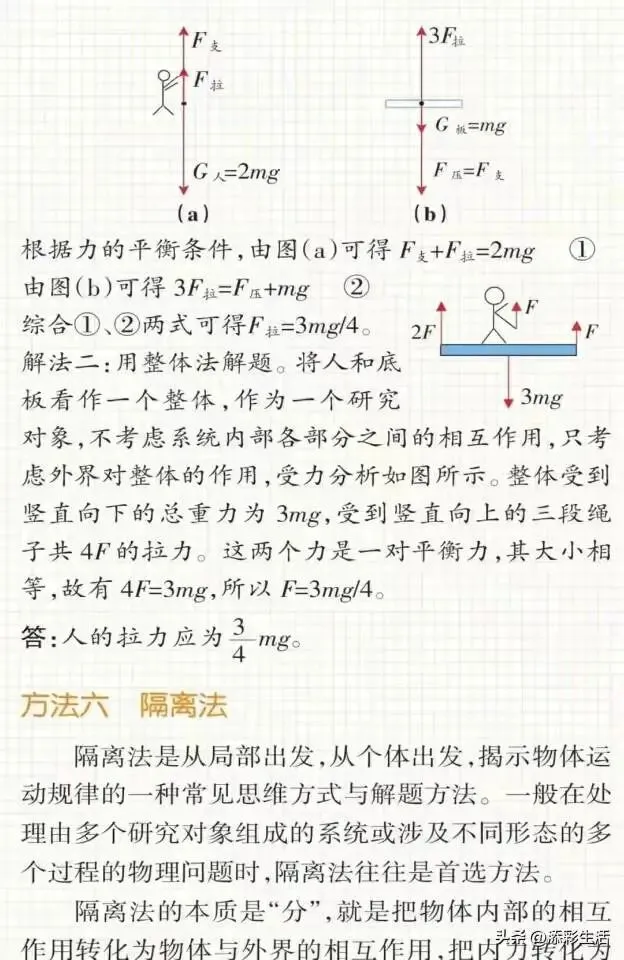 F支
F拉
G人=2mg
(a)
3F拉
G板=mg
F压=F支
(b)
根据力的平衡条件,由图(a)可得 F支+F拉=2mg ①
由图(b)可得 3F拉=F压+mg ②
综合①、②两式可得F拉=3mg/4。
2F
F
F
3mg
解法二:用整体法解题。将人和底
板看作一个整体,作为一个研究
对象,不考虑系统内部各部分之间的相互作用,只考
虑外界对整体的作用,受力分析如图所示。整体受到
竖直向下的总重力为 3mg,受到竖直向上的三段绳
子共 4F 的拉力。这两个力是一对平衡力,其大小相
等,故有 4F=3mg,所以 F=3mg/4。
答:人的拉力应为3/4mg。
方法六 隔离法
隔离法是从局部出发,从个体出发,揭示物体运
动规律的一种常见思维方式与解题方法。一般在处
理由多个研究对象组成的系统或涉及不同形态的多
个过程的物理问题时,隔离法往往是首选方法。
隔离法的本质是“分”,就是把物体内部的相互
作用转化为物体与外界的相互作用,把内力转化为
头条@添彩生活